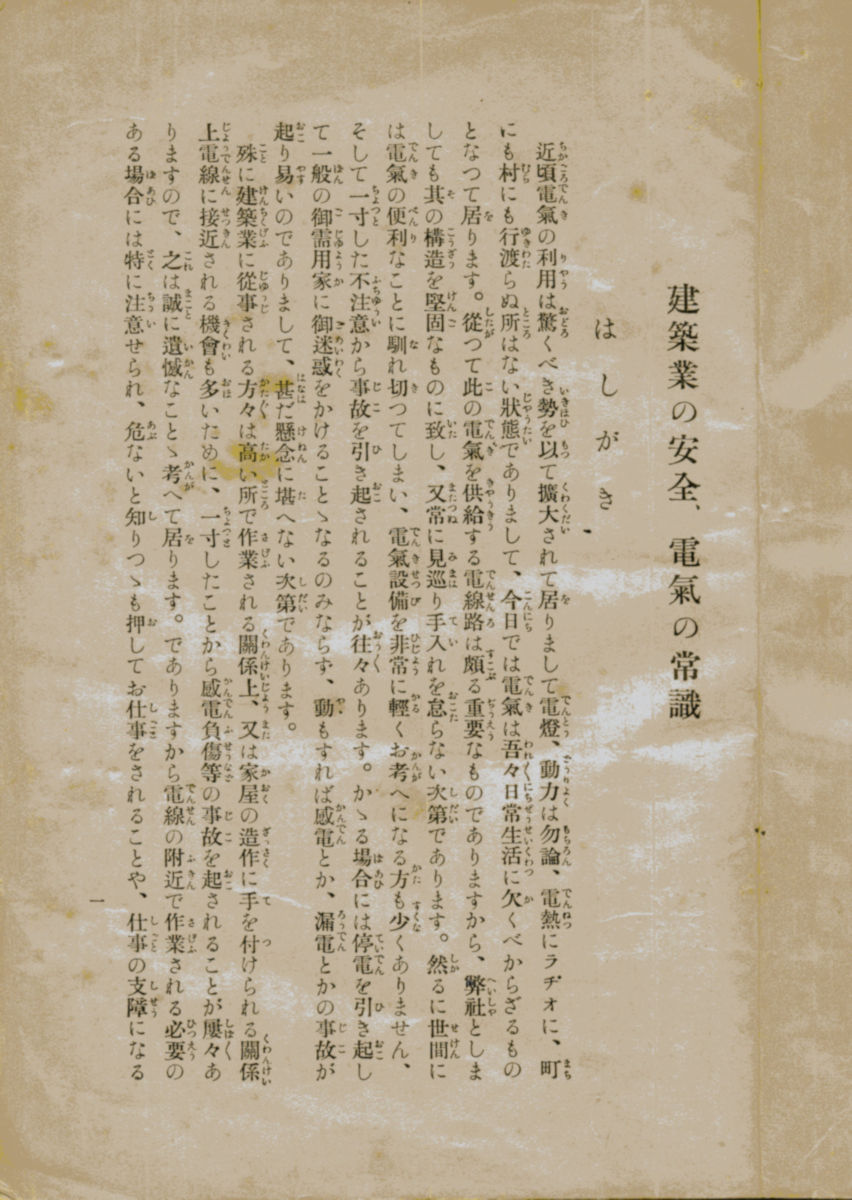 建築業の安全、電氣の常識
はしがき
近頃電氣の利用は驚くべき勢を以て擴大されて居りまして電燈、動力は勿論、電熱にラヂオに、町
にも村にも行渡らぬ所はない狀態でありまして、今日では電氣は吾々日常生活に欠くべからざるもの
となつて居ります。從つて此の電氣を供給する電線路は頗る重要なものでありますから、弊社としま
しても其の構造を堅固なものに致し、又常に見巡り手入れを怠らない次第であります。然るに世間に
は電氣の便利なことに馴れ切つてしまい、電氣設備を非常に輕くお考へになる方も少くありません、
そして一寸した不注意から事故を引き起されることが往々あります。かゝる場合には停電を引き起し
て一般の御需用家に御迷惑をかけることゝなるのみならず、動もすれば感電とか、漏電とかの事故が
起り易いのでありまして、甚だ懸念に堪へない次第であります。
殊に建築業に從事される方々は高い所で作業される關係上、又は家屋の造作に手を付けられる關係
上電線に接近される機會も多いために、一寸したことから感電負傷等の事故を起されることが屢々あ
りますので、之は誠に遺憾なことゝ考へて居ります。でありますから電線の附近で作業される必要の
ある場合には特に注意せられ、危ないと知りつゝも押してお仕事をされることや、仕事の支障になる
一